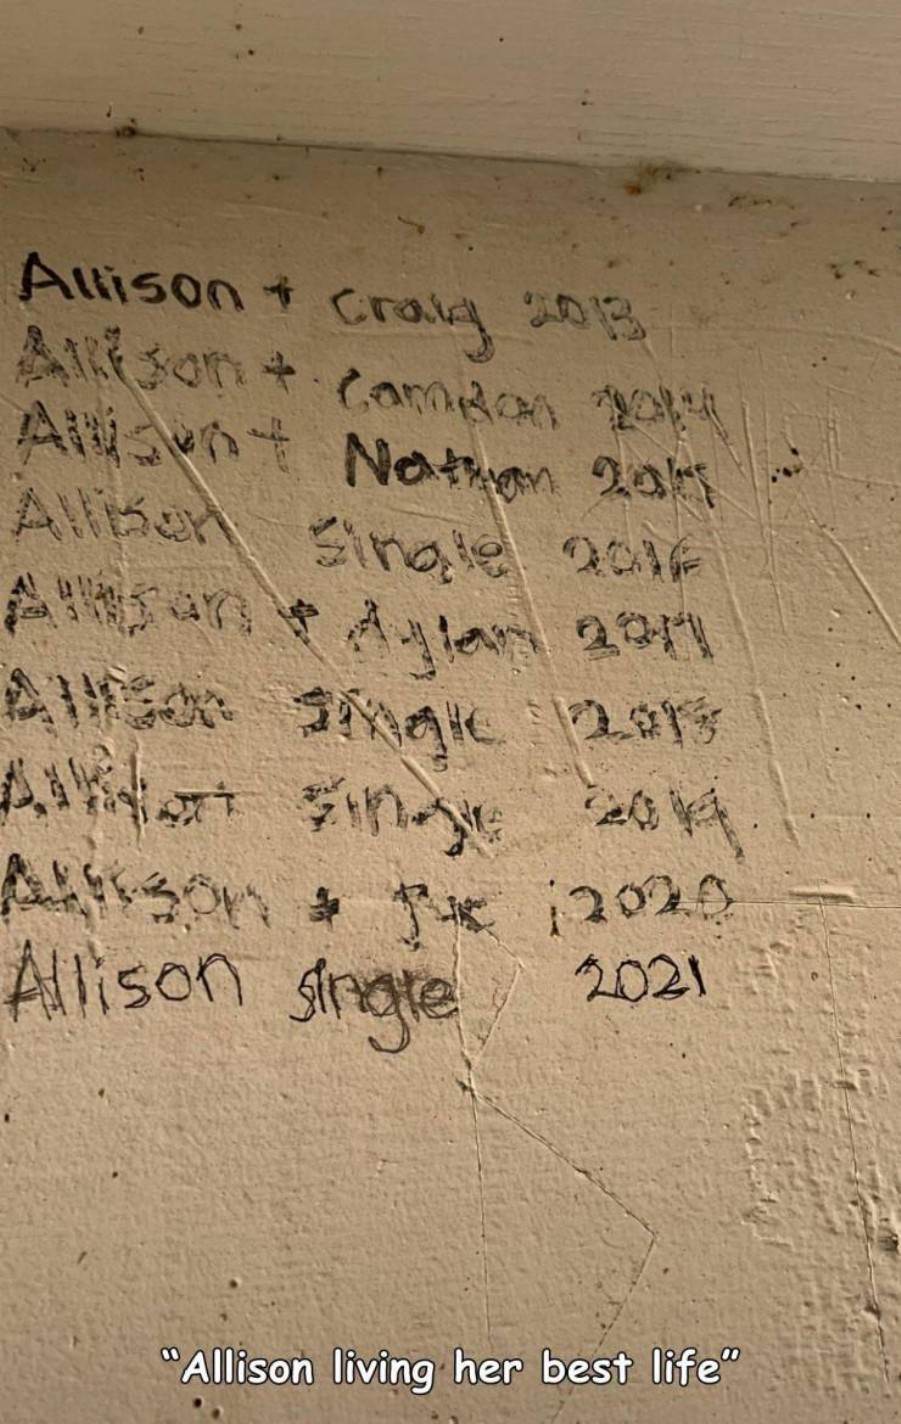 Allison + Craig 2013
Allison + Camdon 2014
Allison + Nathan 2015
Allison Single 2016
Allison + Dylan 2017
Allison Single 2018
Allison Single 2019
Allison + 2020
Allison single 2021
“Allison living her best life”